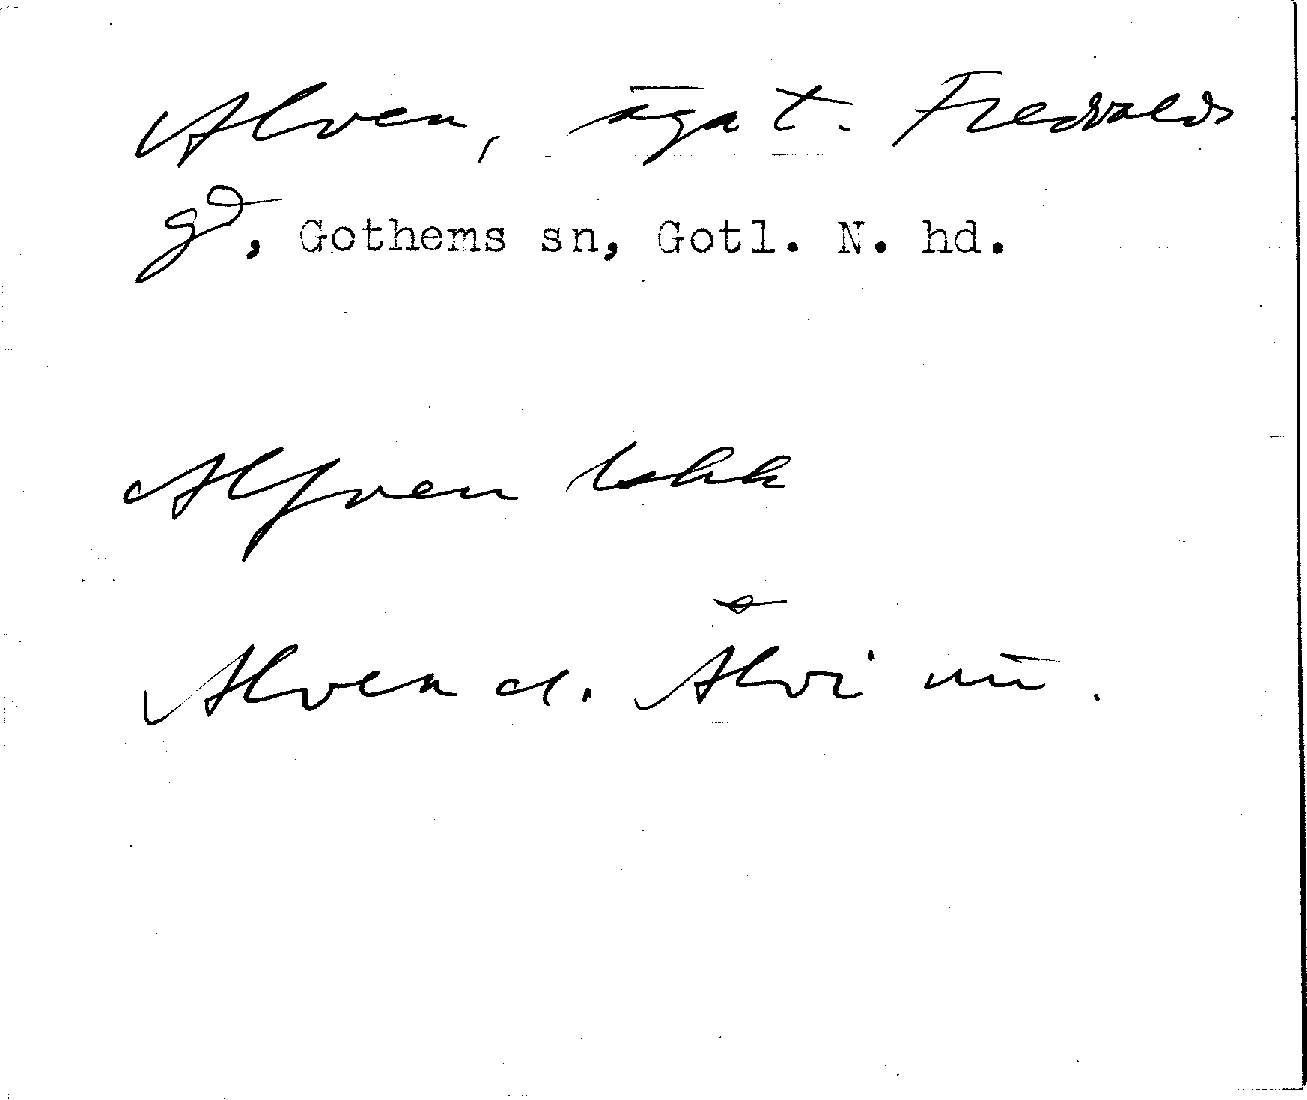 Alven, äga t. Fredvalds
gd, Gothems sn, Gotl. N. hd.
Alfven lskk
Alven el. Alvi nu.